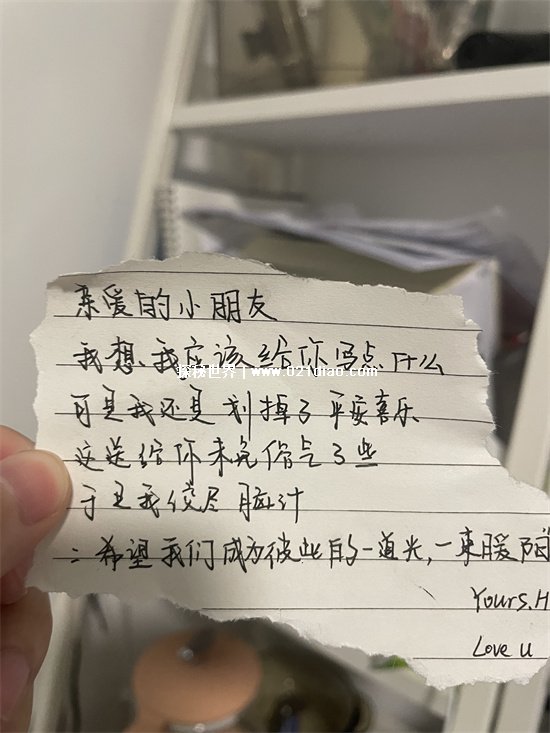 亲爱的小朋友
我想,我应该给你写点什么
探秘世界 | www.021qiao.com
可是我还是划掉了平安喜乐
这送给你未免俗气了些
于是我绞尽脑汁
:希望我们成为彼此的一道光,一束暖阳
Yours, H
Love u